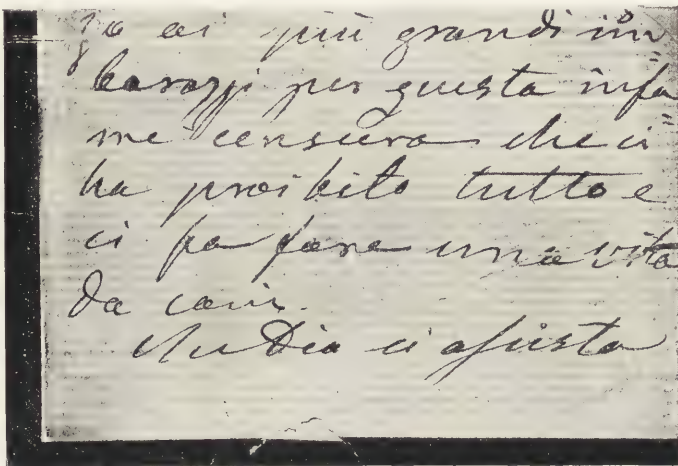 ga ai più grandi im
barazzi per questa infa
me censura che ci
ha proibito tutto e
ci fa fare una vita
da cani.
Dio ci assista